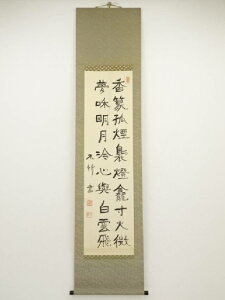 香篆孤煙裊燈龕寸火微
夢咏明月冷心與白雲飛
木竹書